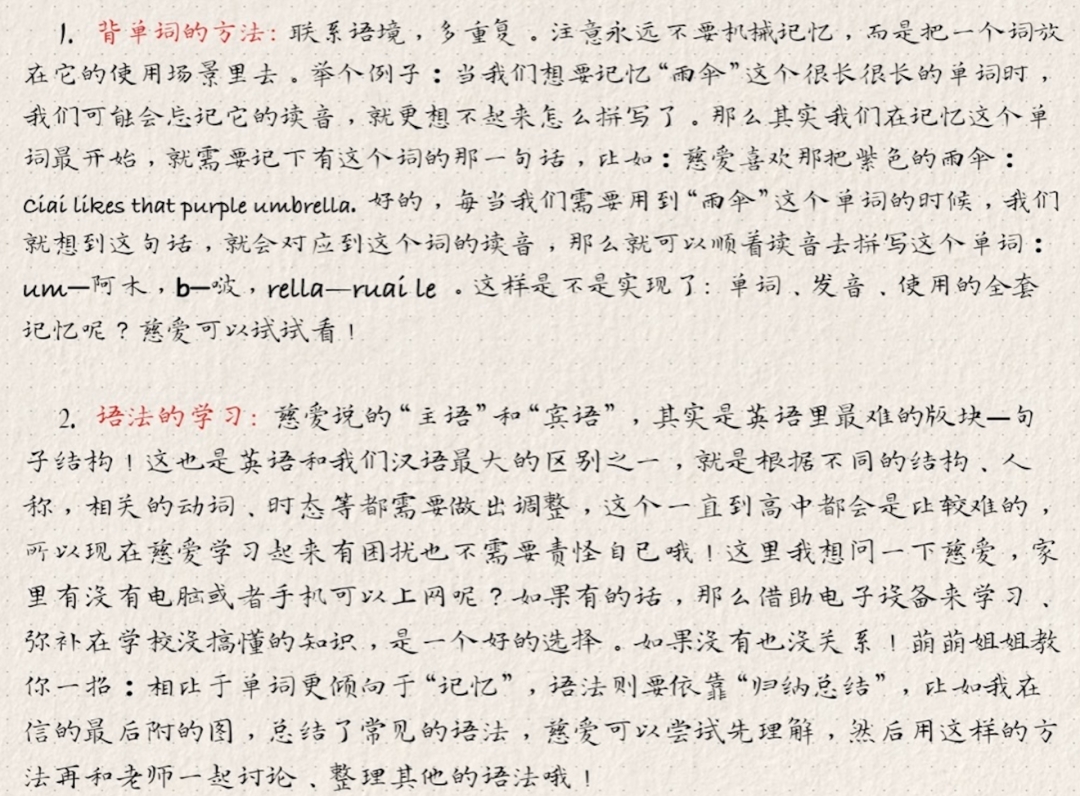 1. 背单词的方法：联系语境，多重复。注意永远不要机械记忆，而是把一个词放
在它的使用场景里去。举个例子：当我们想要记忆“雨伞”这个很长很长的单词时，
我们可能会忘记它的读音，就更想不起来怎么拼写了。那么其实我们在记忆这个单
词最开始，就需要记下有这个词的那一句话，比如：慈爱喜欢那把紫色的雨伞：
Ciai likes that purple umbrella. 好的，每当我们需要用到“雨伞”这个单词的时候，我们
就想到这句话，就会对应到这个词的读音，那么就可以顺着读音去拼写这个单词：
um—阿木，b—啵，rella—ruai le 。这样是不是实现了：单词、发音、使用的全套
记忆呢？慈爱可以试试看！
2. 语法的学习：慈爱说的“主语”和“宾语”，其实是英语里最难的版块—句
子结构！这也是英语和我们汉语最大的区别之一，就是根据不同的结构、人
称，相关的动词、时态等都需要做出调整，这个一直到高中都会是比较难的，
所以现在慈爱学习起来有困扰也不需要责怪自己哦！这里我想问一下慈爱，家
里有没有电脑或者手机可以上网呢？如果有的话，那么借助电子设备来学习、
弥补在学校没搞懂的知识，是一个好的选择。如果没有也没关系！萌萌姐姐教
你一招：相比于单词更倾向于“记忆”，语法则要依靠“归纳总结”，比如我在
信的最后附的图，总结了常见的语法，慈爱可以尝试先理解，然后用这样的方
法再和老师一起讨论、整理其他的语法哦！